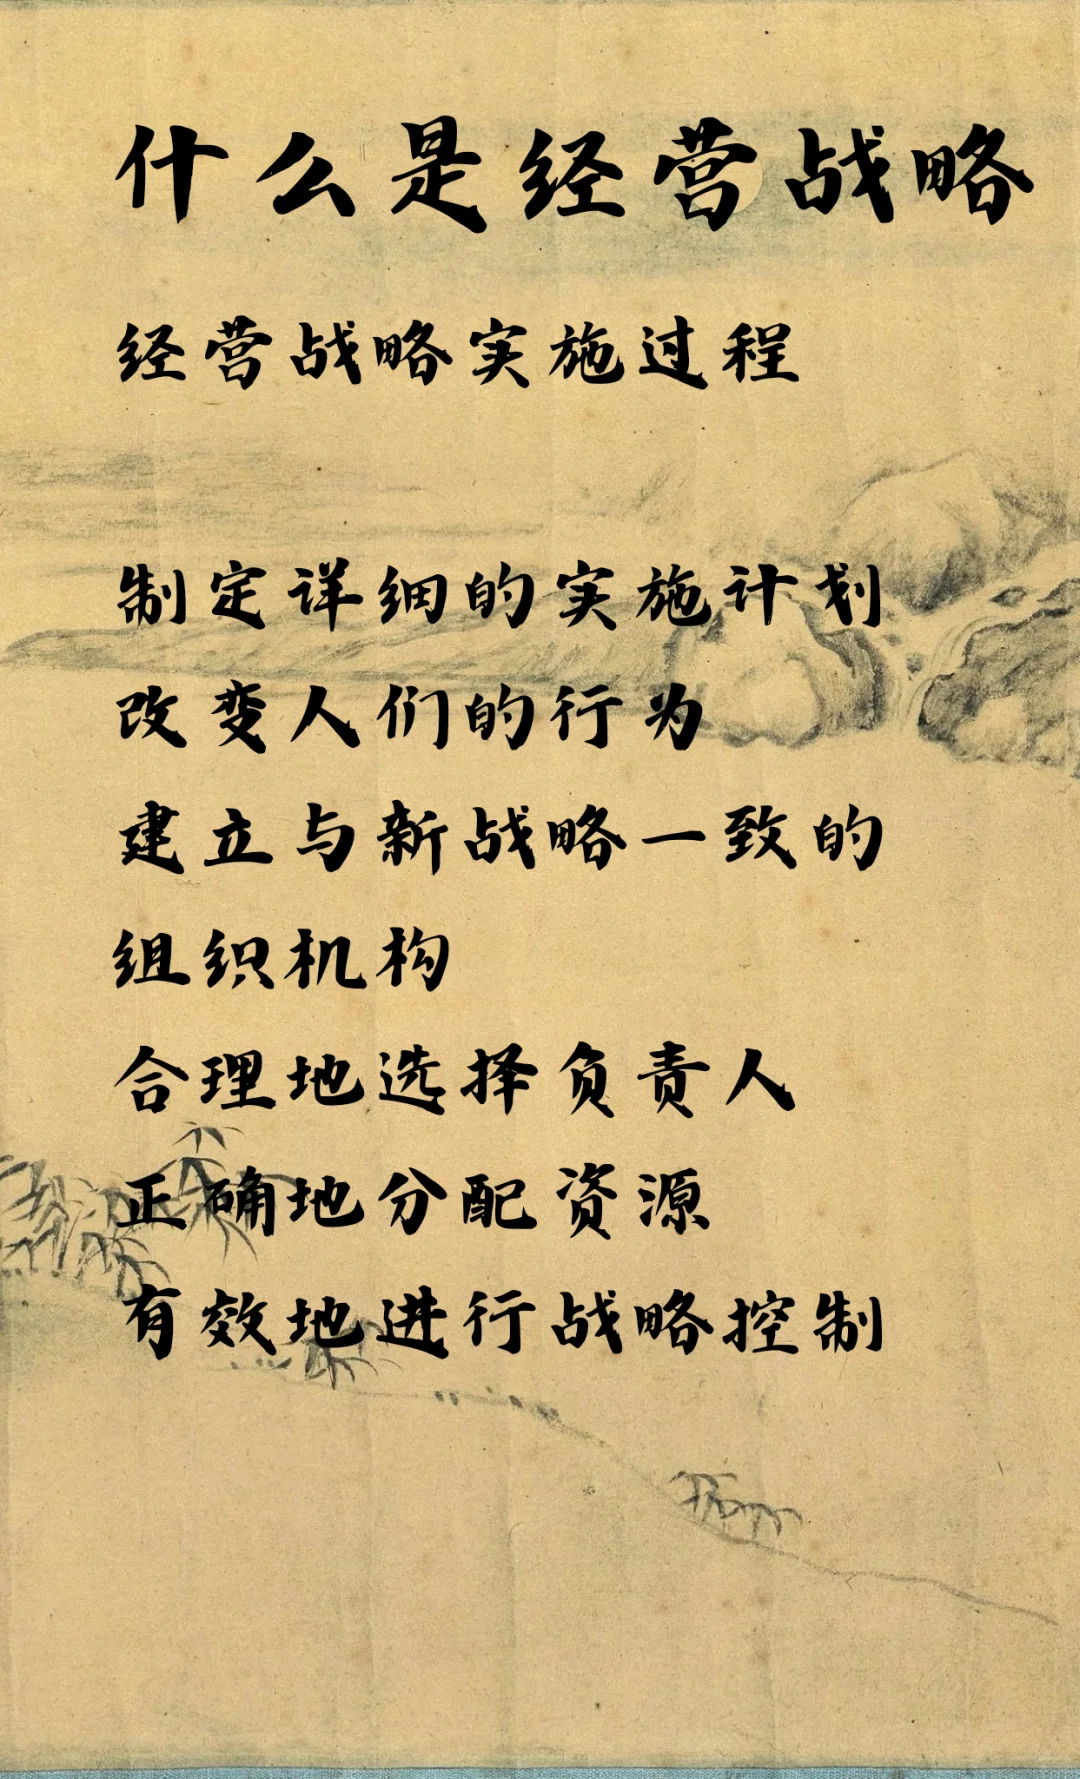 什么是经营战略
经营战略实施过程
制定详细的实施计划
改变人们的行为
建立与新战略一致的
组织机构
合理地选择负责人
正确地分配资源
有效地进行战略控制